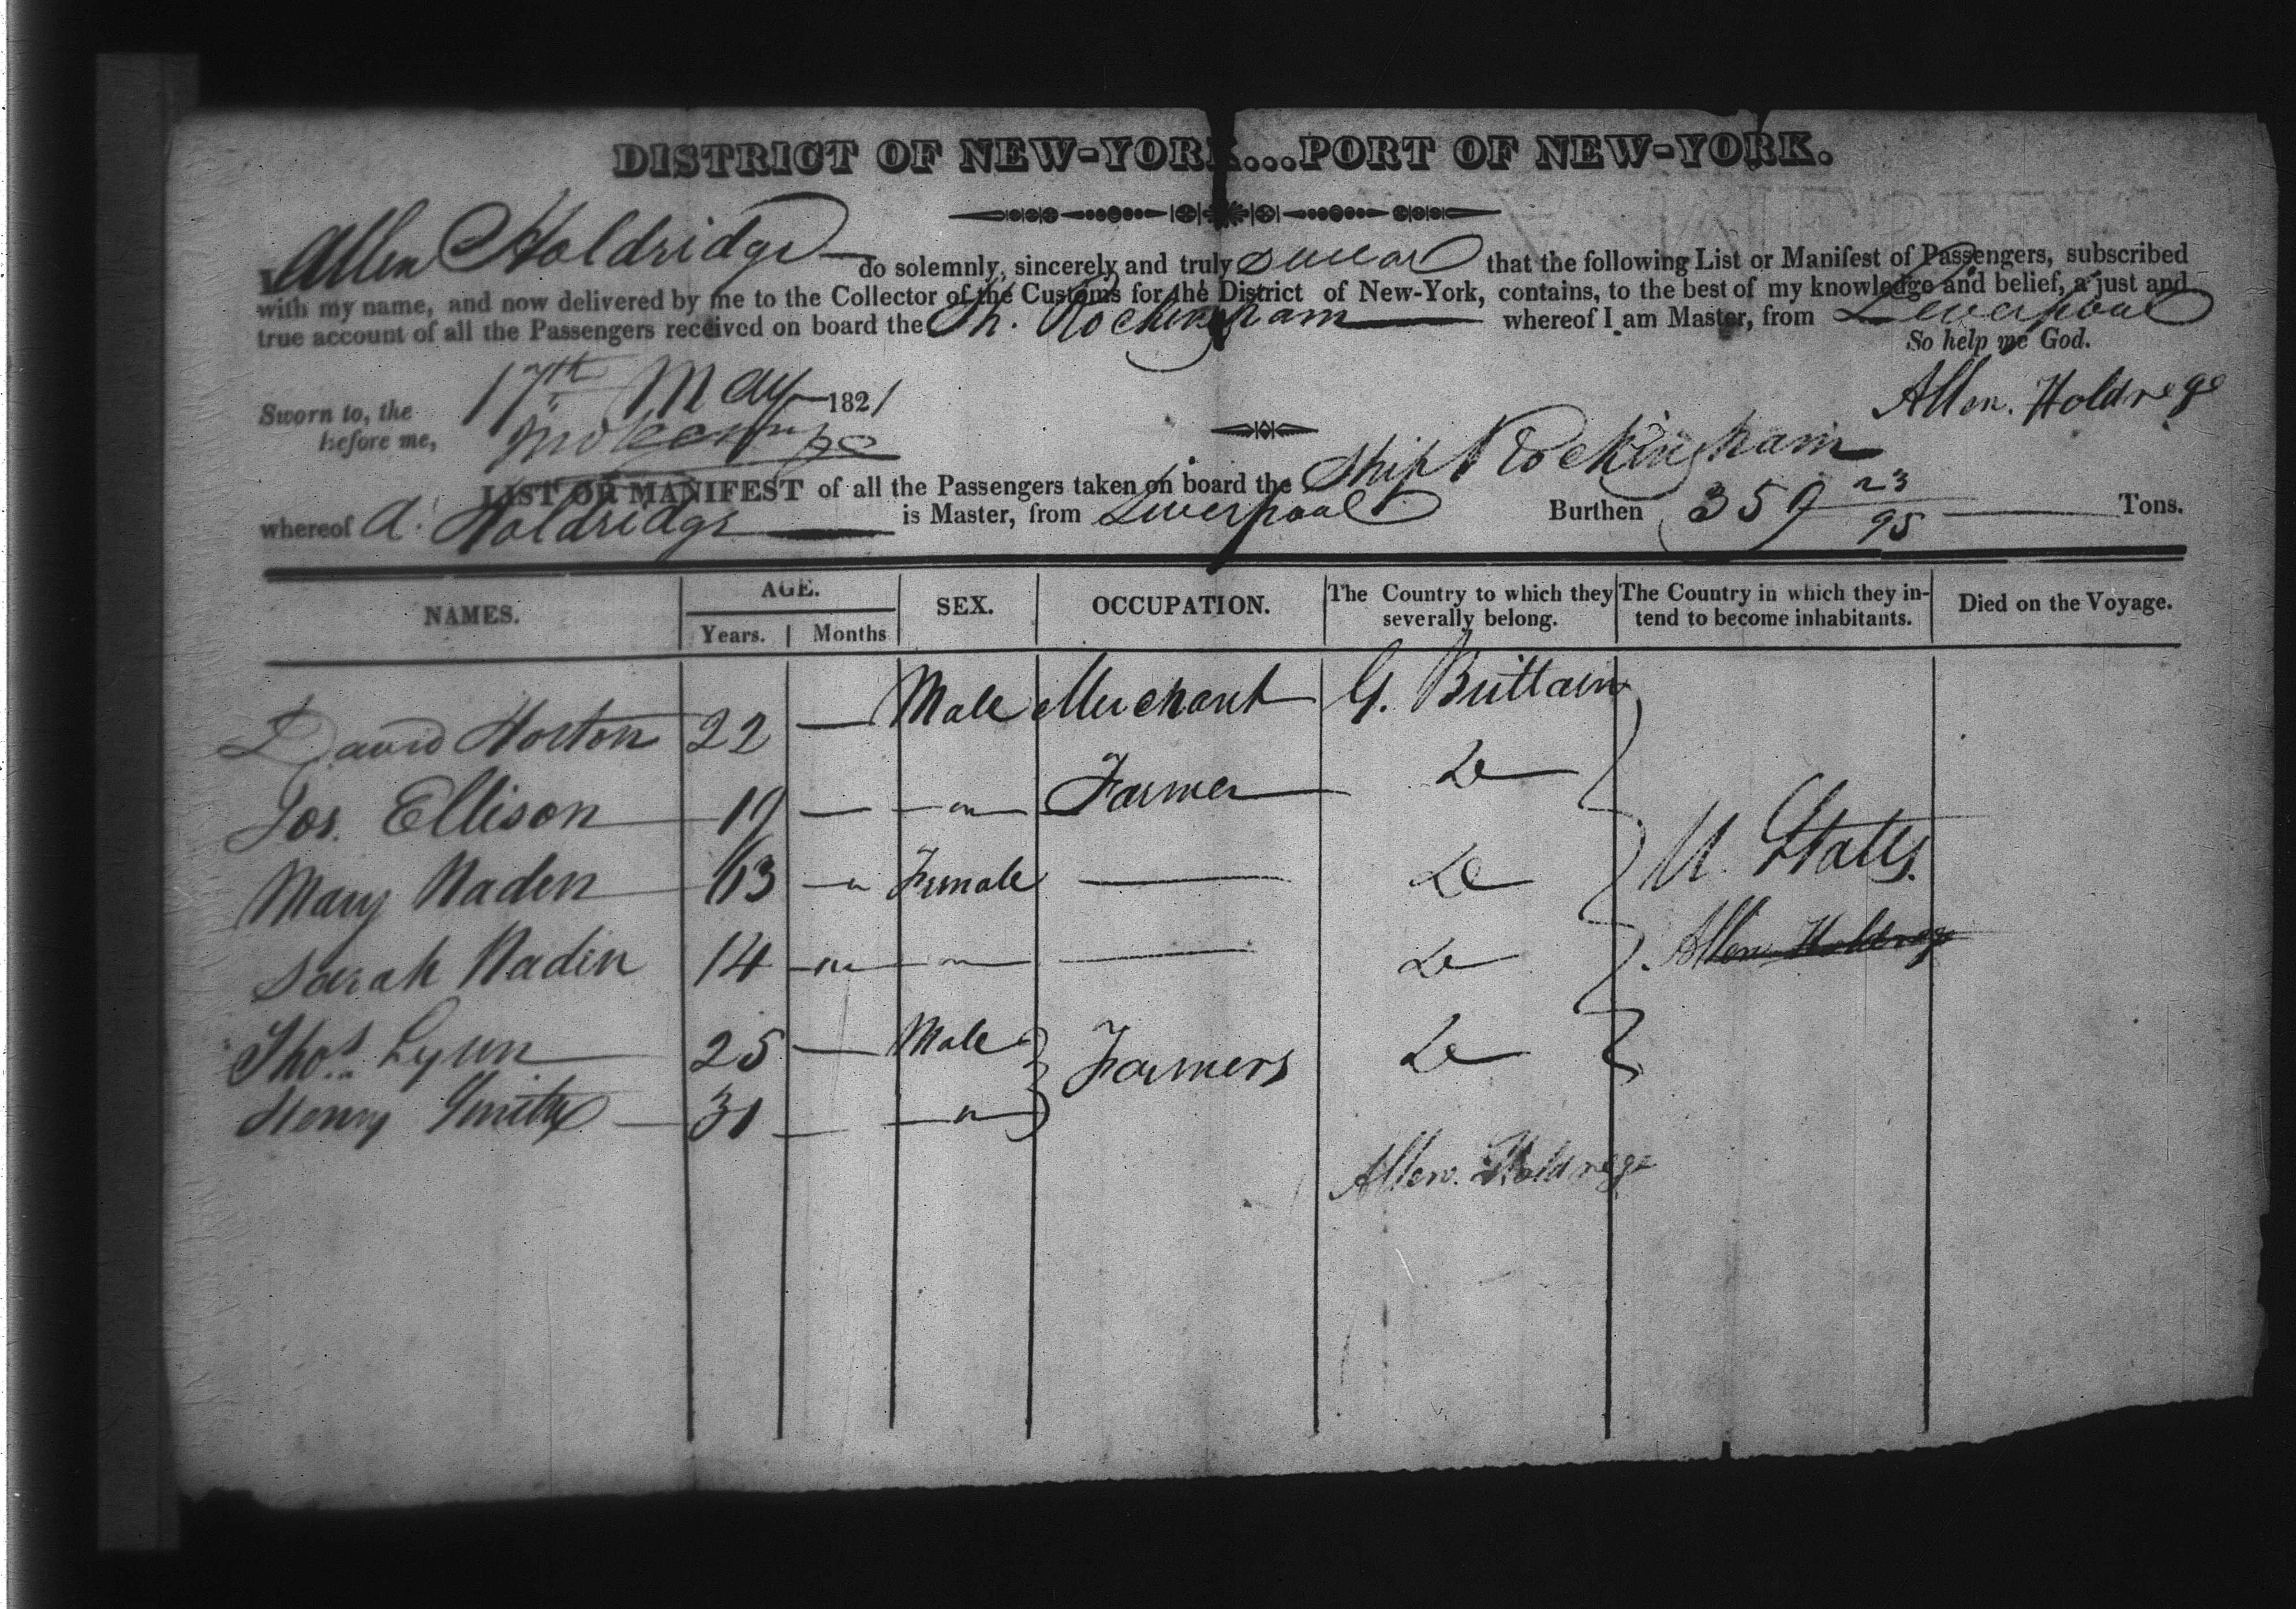 DISTRICT OF NEW-YORK...PORT OF NEW-YORK.
I Allen Holdridge do solemnly, sincerely and truly swear that the following List or Manifest of Passengers, subscribed
with my name, and now delivered by me to the Collector of the Customs for the District of New-York, contains, to the best of my knowledge and belief, a just and
true account of all the Passengers received on board the Sh. Rockingham whereof I am Master, from Liverpool
So help me God.
Sworn to, the 17th May 1821
Allen. Holdrege
before me,
LIST OR MANIFEST of all the Passengers taken on board the Ship Rockingham
whereof A. Holdridge is Master, from Liverpool Burthen 359 23/95 Tons.
NAMES. AGE. SEX. OCCUPATION. The Country to which they severally belong. The Country in which they intend to become inhabitants. Died on the Voyage.
Years. Months
David Horton 22 — Male Merchant G. Brittain
Jos. Ellison 19 — " Farmer Do
Mary Naden 13 — " Female — Do U. States.
Sarah Naden 14 — " — " — Do Allen Holdrege
Thos. Lynn 25 — Male Farmers Do
Henry Smith 31 — "
Allen. Holdrege